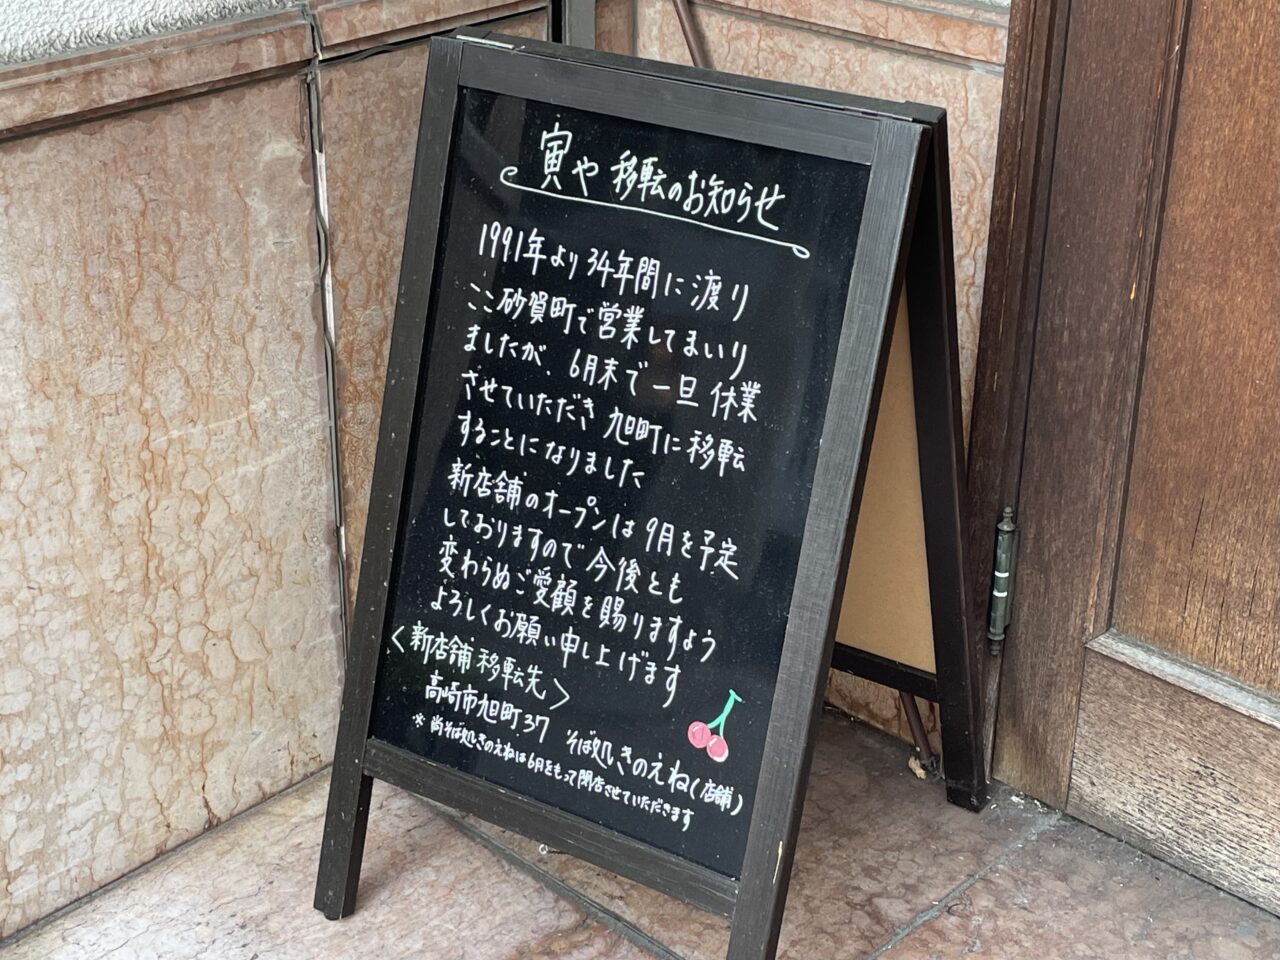 寅や 移転のお知らせ
1991年より34年間に渡り
ここ砂賀町で営業してまいり
ましたが、6月末で一旦休業
させていただき 旭町に移転
することになりました
新店舗のオープンは9月を予定
しておりますので今後とも
変わらぬご愛顧を賜りますよう
よろしくお願い申し上げます
<新店舗移転先>
高崎市旭町37 そば処きのえね(店舗)
※尚そば処きのえねは6月をもって閉店させていただきます